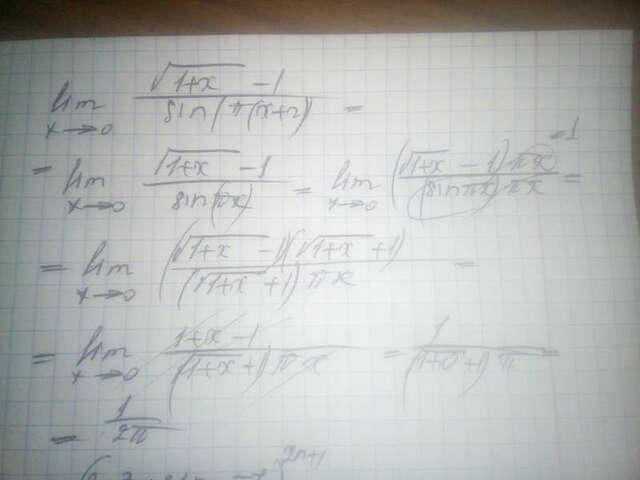 lim x→0 (√(1+x) −1)/(sin(π(x+2)) =
= lim x→0 (√(1+x) −1)/(sin(πx)) = lim x→0 ((√(1+x) −1) πx)/((sin πx) πx) = =1
= lim x→0 ((√(1+x) −1)(√(1+x) +1))/((√(1+x) +1) πx) =
= lim x→0 (1+x −1)/((1+x +1) πx) = 1/((1+0 +1) π) =
= 1/(2π)
2n+1